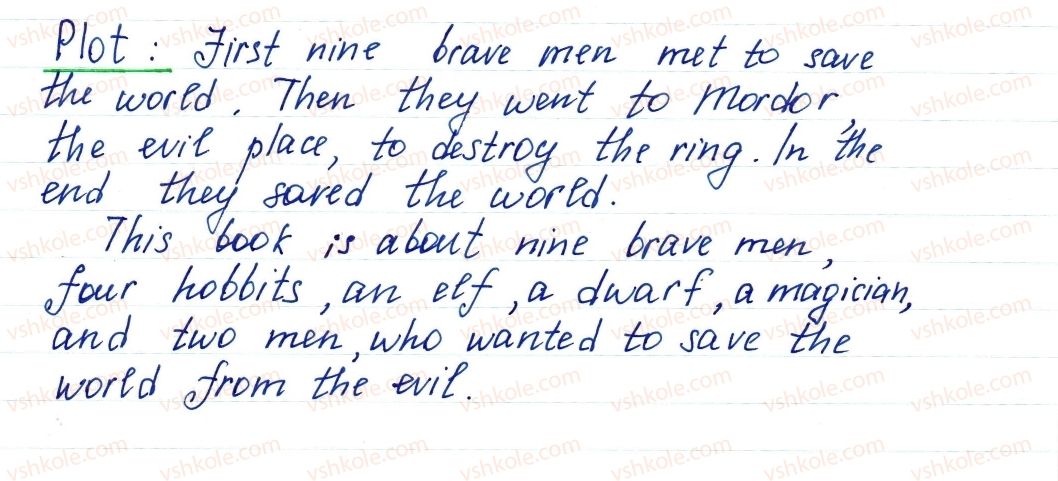 Plot : First nine brave men met to save
the world. Then they went to Mordor,
the evil place, to destroy the ring. In the
end they saved the world.
This book is about nine brave men,
four hobbits, an elf, a dwarf, a magician,
and two men, who wanted to save the
world from the evil.